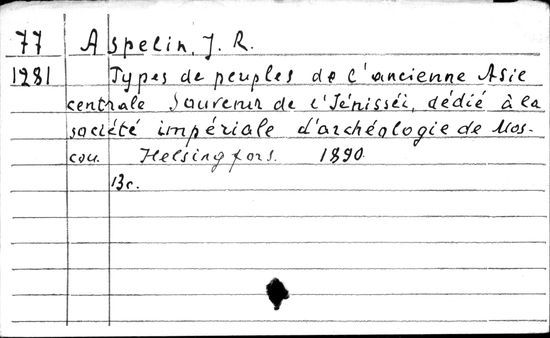 77 Aspelin, J. R.
1281 Types de peuples de l'ancienne Asie
centrale Souvenir de l'Iénisséi, dédié à la
société impériale d'archéologie de Mos-
cou. Helsingfors. 1890.
13c.